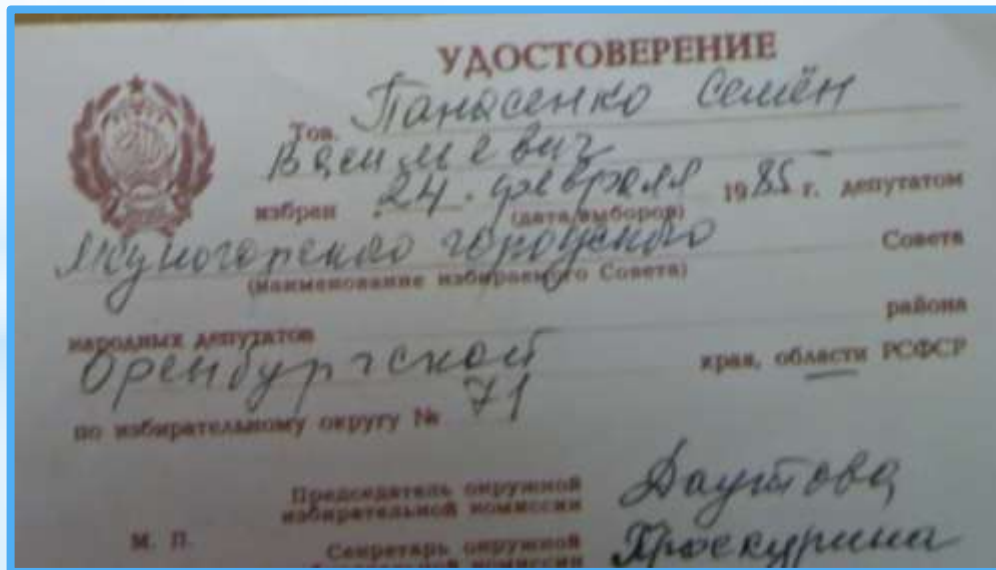 УДОСТОВЕРЕНИЕ
Тов. Панасенко Семён
Васильевич
избран 24. февраля 1985 г. депутатом
(дата выборов)
городского Совета
(наименование избираемого Совета)
народных депутатов района
Оренбургской края, области РСФСР
по избирательному округу № 71
Председатель окружной
избирательной комиссии Даутова
М. П. Секретарь окружной Проскурина
избирательной комиссии